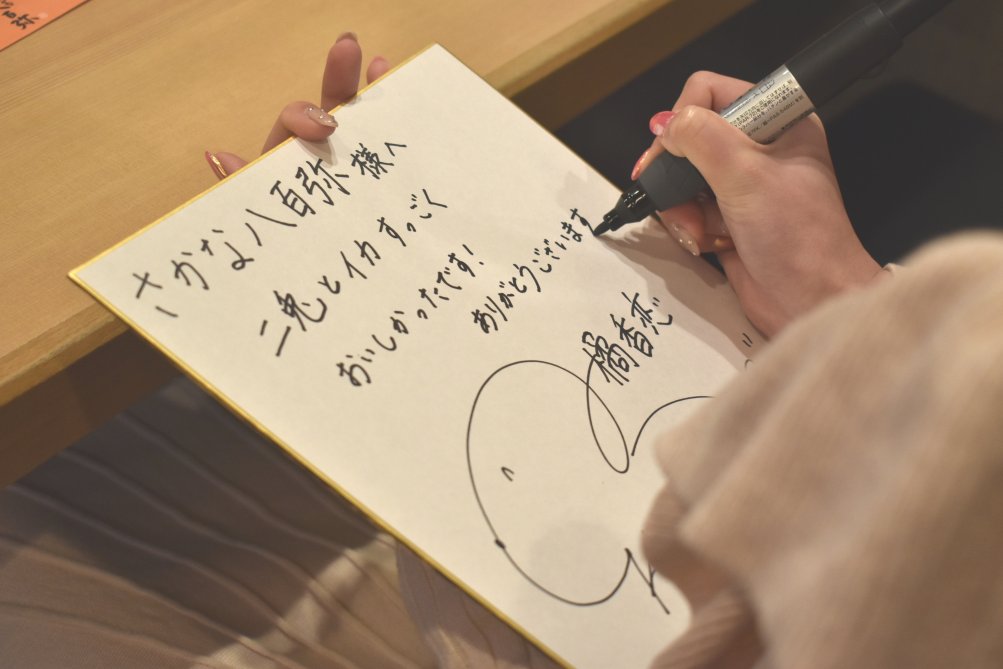 さかな八百弥 様へ
二兎とイカ すっごく
おいしかったです!
ありがとうございます
橘香恋